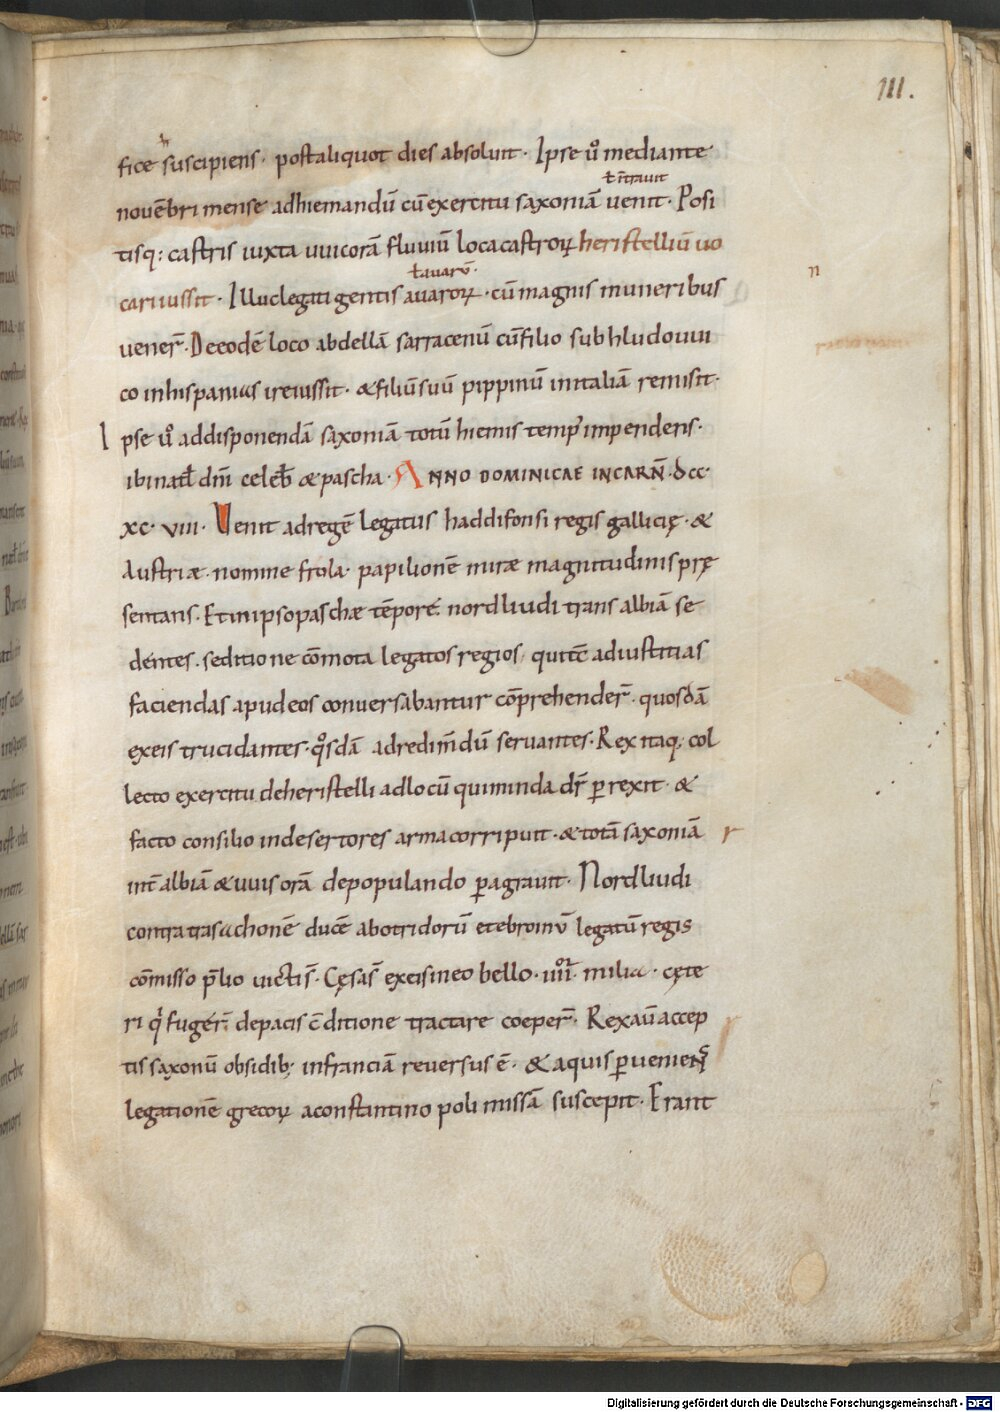 III.
h
fice suscipiens. post aliquot dies absoluit. Ipse u͛o mediante
ł intrauit
nouēbri mense adhiemandū cū exercitu saxoniā uenit. Posi
tisq; castris iuxta uuicorā fluuiū loca castroꝝ heristelliū uo
ł auarū.
n
cari iussit. Illuc legati gentis auaroꝝ. cū magnis muneribus
uener̄. Deeodē loco abdellā sarracenū cū filio sub hludouui
co in hispanias ire iussit. & filiū suū pippinū in italiā remisit.
Ipse u͛o addisponendā saxoniā totū hiemis temp᾽ impendens.
ibi natał dn̄i celeb̄ & pascha. ANNO DOMINICAE INCARN̄. DCC.
XC. VIII. Uenit ad regē legatus haddifonsi regis gallicię. &
Austriæ. nomine frola. papilionē miræ magnitudinis prę
sentans. Et in ipso paschæ tēpore. nordliudi trans albiā se
dentes. seditione cōmota legatos regios, qui tc̄ ad iustitias
faciendas apud eos conuersabantur cōprehender̄. quosdā
ex eis trucidantes. qͦsdā ad redim̄dū seruantes. Rex itaq; col
lecto exercitu de heristelli ad locū qui minda dr̄ ꝑrexit. &
facto consilio in desertores arma corripuit. & totā saxoniā
r
int̄ albiā & uuisorā depopulando ꝑagrauit. Nordliudi
contra trasuchonē ducē abotridorū et ebroinū legatū regis
cōmisso p̄lio uicti s̄. Cęsa s̄ ex eis in eo bello. IIIIoꝛ. milia. cęte
ri qͥ fuger̄. de pacis c̄ditione tractare coeper̄. Rex au̅ accep
tis saxonū obsidib; in franciā reuersus ē. & aquis ꝑueniens
legationē grecoꝝ a constantinopoli missā suscepit. Erant
Digitalisierung gefördert durch die Deutsche Forschungsgemeinschaft - DFG